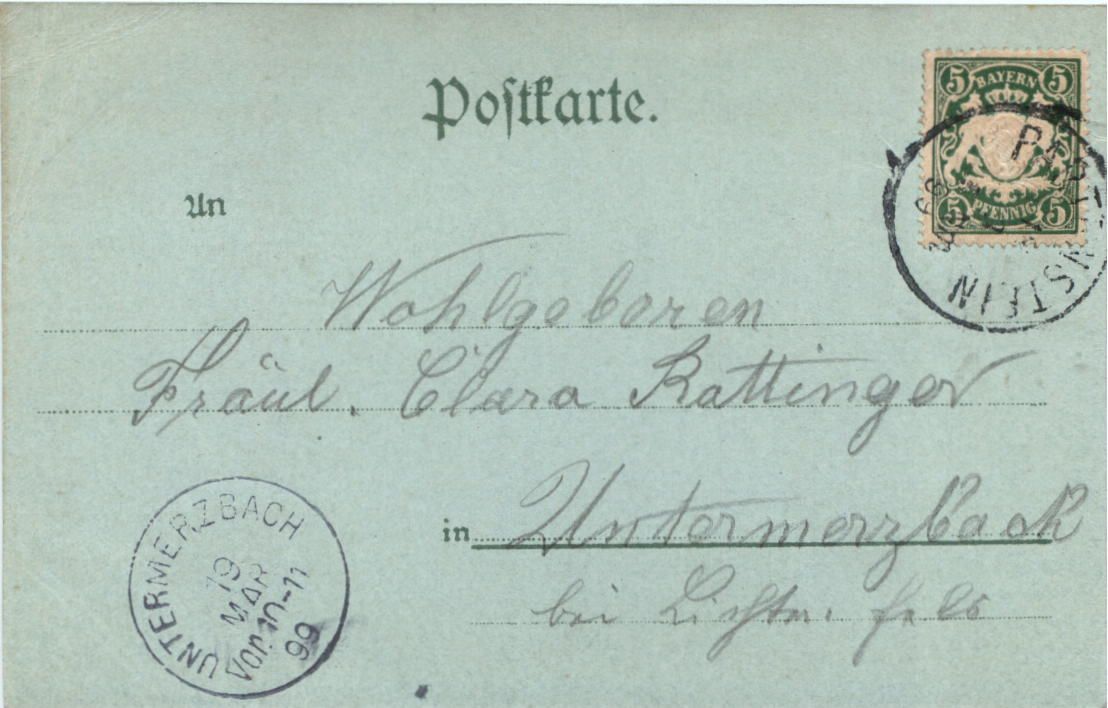 Postkarte.
5 BAYERN 5
5 PFENNIG 5
An
Wohlgeboren
Fräul. Clara Rattinger
in Untermerzbach
bei Lichtenfels
UNTERMERZBACH
19
MAR
VOR. 10-11
99